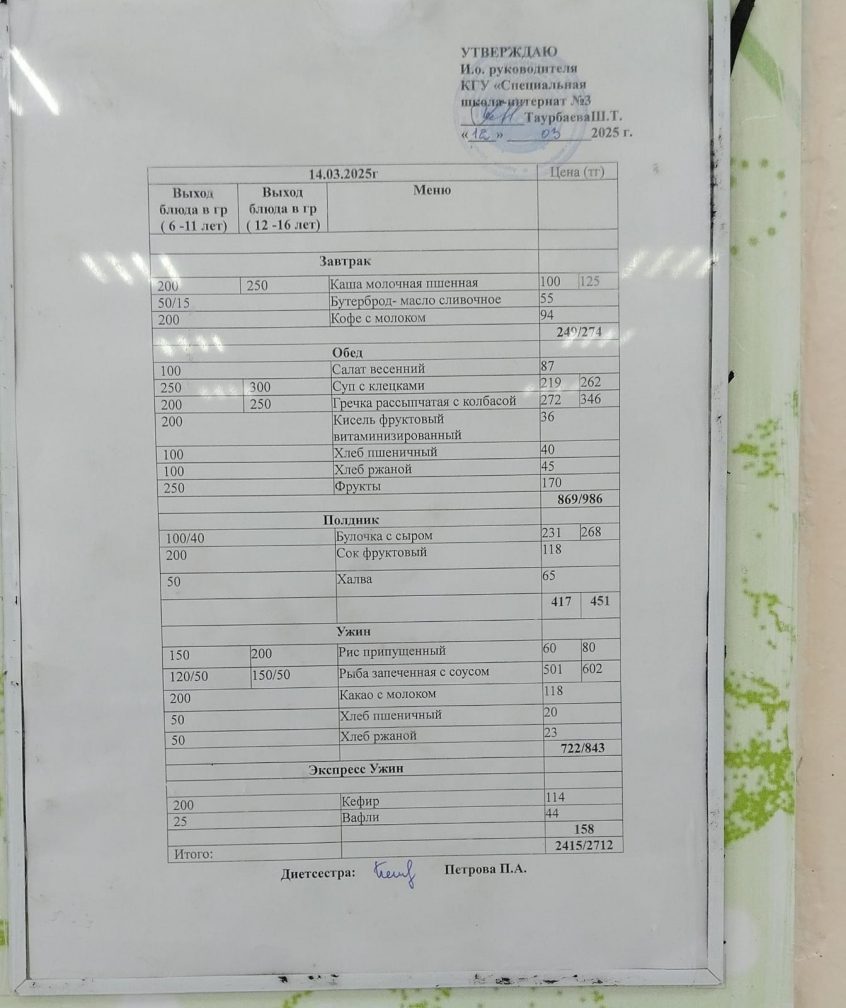 УТВЕРЖДАЮ
И.о. руководителя
КГУ «Специальная
школа-интернат №3
ТаурбаеваШ.Т.
«12» 03 2025 г.
14.03.2025г Цена (тг)
Выход Выход Меню
блюда в гр блюда в гр
( 6 -11 лет) ( 12 -16 лет)
Завтрак
200 250 Каша молочная пшенная 100 125
50/15 Бутерброд- масло сливочное 55
200 Кофе с молоком 94
249/274
Обед
100 Салат весенний 87
250 300 Суп с клецками 219 262
200 250 Гречка рассыпчатая с колбасой 272 346
200 Кисель фруктовый 36
витаминизированный
100 Хлеб пшеничный 40
100 Хлеб ржаной 45
250 Фрукты 170
869/986
Полдник
100/40 Булочка с сыром 231 268
200 Сок фруктовый 118
50 Халва 65
417 451
Ужин
150 200 Рис припущенный 60 80
120/50 150/50 Рыба запеченная с соусом 501 602
200 Какао с молоком 118
50 Хлеб пшеничный 20
50 Хлеб ржаной 23
722/843
Экспресс Ужин
200 Кефир 114
25 Вафли 44
158
Итого: 2415/2712
Диетсестра: Петрова П.А.